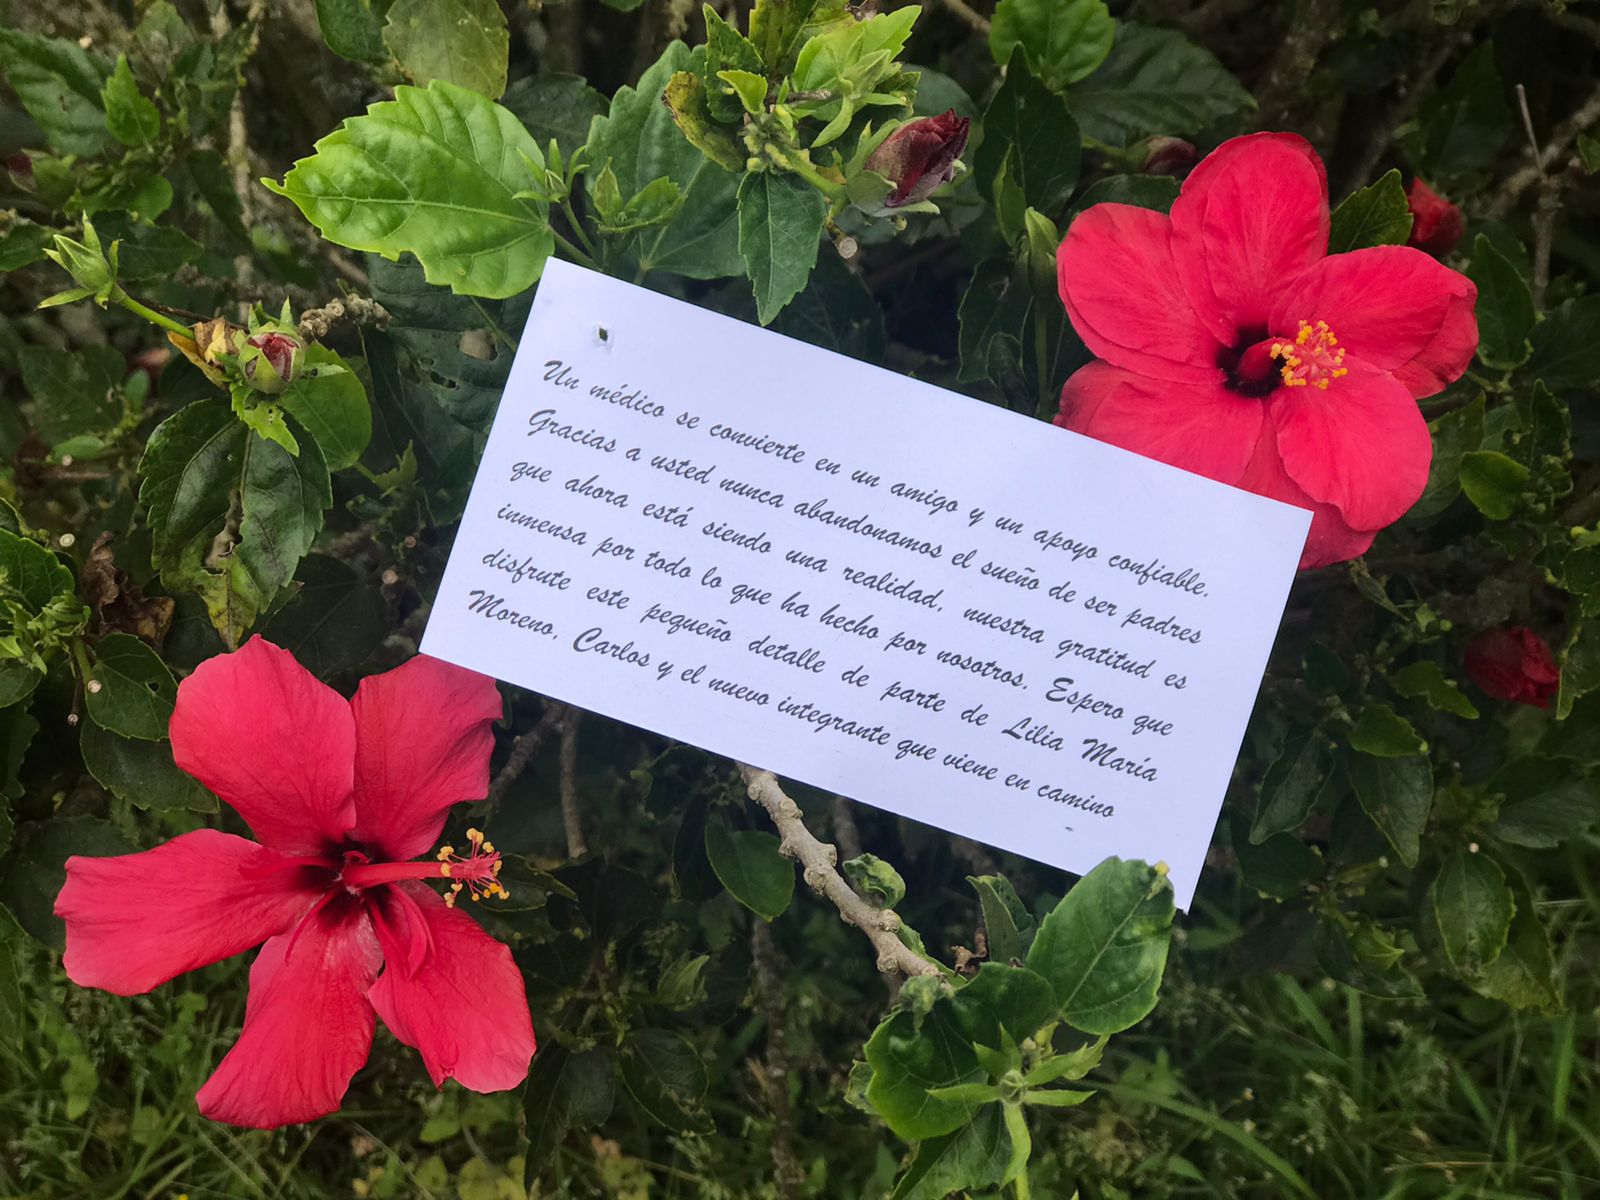 Un médico se convierte en un amigo y un apoyo confiable.
Gracias a usted nunca abandonamos el sueño de ser padres
que ahora está siendo una realidad, nuestra gratitud es
inmensa por todo lo que ha hecho por nosotros. Espero que
disfrute este pequeño detalle de parte de Lilia María
Moreno, Carlos y el nuevo integrante que viene en camino